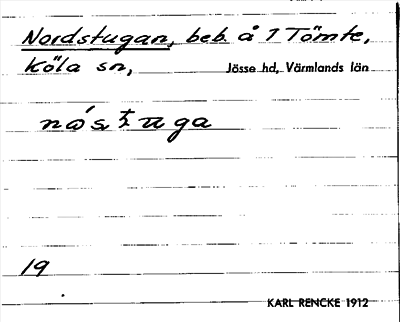 Nordstugan, beb. å 1 Tömte,
Köla sn, Jösse hd, Värmlands län
19
KARL RENCKE 1912